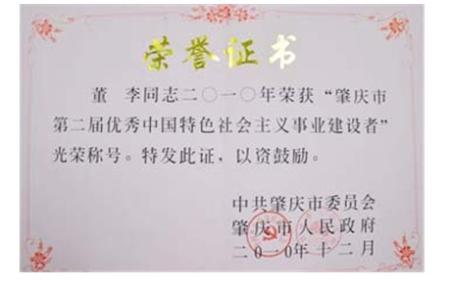 荣誉证书
董 李同志二〇一〇年荣获“肇庆市
第二届优秀中国特色社会主义事业建设者”
光荣称号。特发此证，以资鼓励。
中共肇庆市委员会
肇庆市人民政府
二〇一〇年十二月